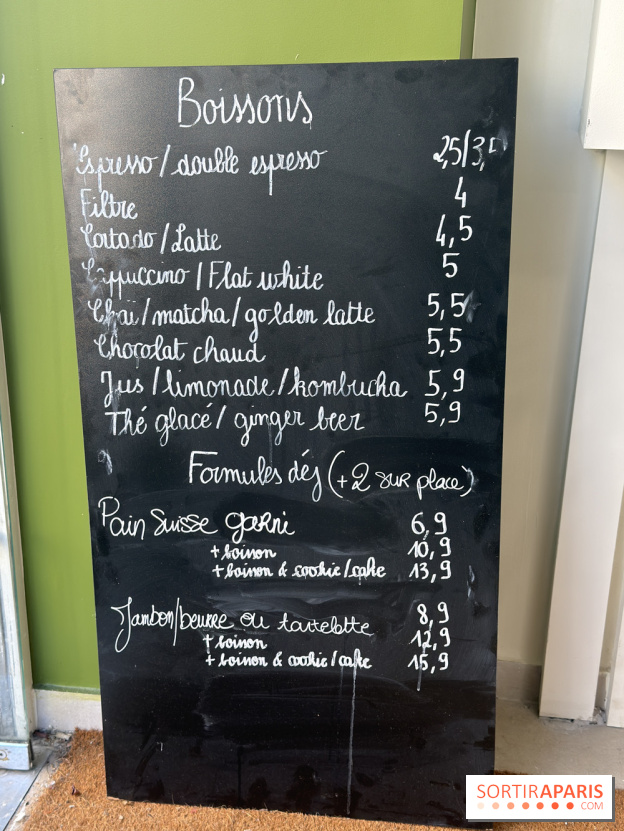 Boissons
Espresso/double espresso 2,5/3,5
Filtre 4
Cortado/Latte 4,5
Cappuccino/Flat white 5
Chaï/matcha/golden latte 5,5
Chocolat chaud 5,5
Jus/limonade/kombucha 5,9
Thé glacé/ginger beer 5,9
Formules déj (+2 sur place)
Pain Suisse garni 6,9
+ boisson 10,9
+ boisson & cookie/cake 13,9
Jambon/beurre ou tartelette 8,9
+ boisson 12,9
+ boisson & cookie/cake 15,9
SORTIRAPARIS
.COM